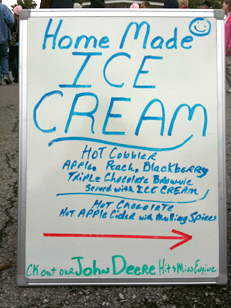 Home Made
ICE
CREAM
HOT Cobbler
Apple, Peach, Blackberry
TRiple Chocolate Brownie
Served with ICE CREAM
HOT Chocolate
HOT APPle Cider with Mulling Spices
CK out our John Deere Hit & Miss Engine